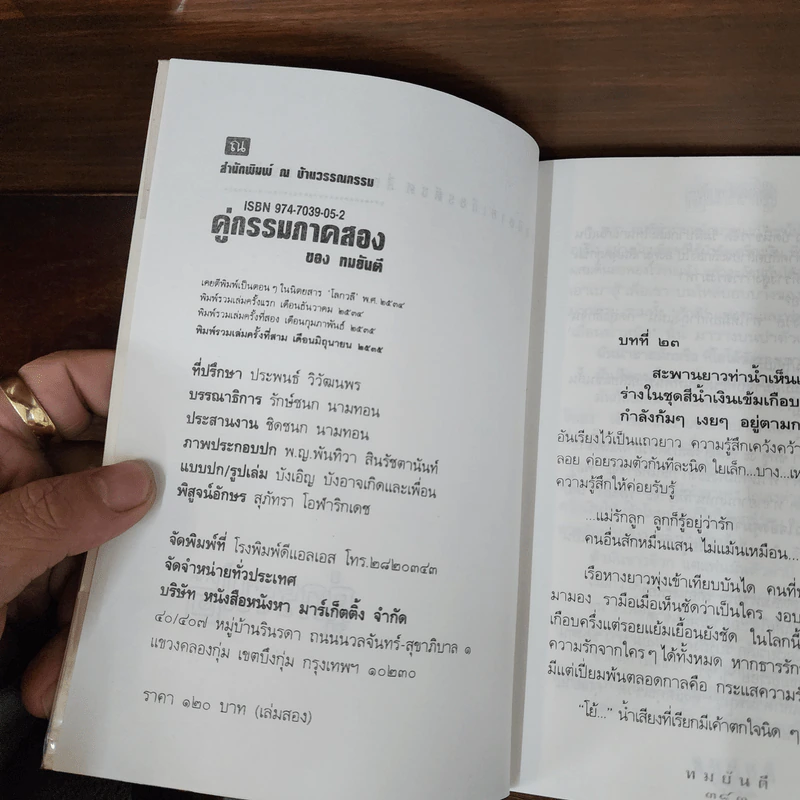 ณ
สำนักพิมพ์ ณ บ้านวรรณกรรม
ISBN 974-7039-05-2
คู่กรรมภาคสอง
ของ ทมยันตี
เคยตีพิมพ์เป็นตอน ๆ ในนิตยสาร "โลกวลี" พ.ศ. ๒๕๓๔
พิมพ์รวมเล่มครั้งแรก เดือนธันวาคม ๒๕๓๔
พิมพ์รวมเล่มครั้งที่สอง เดือนกุมภาพันธ์ ๒๕๓๕
พิมพ์รวมเล่มครั้งที่สาม เดือนมิถุนายน ๒๕๓๕
ที่ปรึกษา ประพนธ์ วิวัฒนพร
บรรณาธิการ รักษ์ชนก นามทอน
ประสานงาน ชิดชนก นามทอน
ภาพประกอบปก พ.ญ.พันทิวา สินรัชตานันท์
แบบปก/รูปเล่ม บังเอิญ บังอาจเกิดและเพื่อน
พิสูจน์อักษร สุภัทรา โอฬาริกเดช
จัดพิมพ์ที่ โรงพิมพ์ดีแอลเอส โทร.๒๘๒๐๓๔๓
จัดจำหน่ายทั่วประเทศ
บริษัท หนังสือหนังหา มาร์เก็ตติ้ง จำกัด
๔๐/๔๐๗ หมู่บ้านรินรดา ถนนนวลจันทร์-สุขาภิบาล ๑
แขวงคลองกุ่ม เขตบึงกุ่ม กรุงเทพฯ ๑๐๒๓๐
ราคา ๑๒๐ บาท (เล่มสอง)
บทที่ ๒๓
สะพานยาวท่าน้ำเห็นเ
ร่างในชุดสีน้ำเงินเข้มเกือบ
กำลังก้มๆ เงยๆ อยู่ตามก
อันเรียงไว้เป็นแถวยาว ความรู้สึกเคว้งคว้า
ลอย ค่อยรวมตัวกันทีละนิด ใยเล็ก...บาง...เห
ความรู้สึกให้ค่อยรับรู้
...แม่รักลูก ลูกก็รู้อยู่ว่ารัก
คนอื่นสักหมื่นแสน ไม่แม้นเหมือน...
เรือหางยาวพุ่งเข้าเทียบบันได คนที่
มามอง รามือเมื่อเห็นชัดว่าเป็นใคร งอบ
เกือบครึ่งแต่รอยแย้มเยื้อนยังชัด ในโลกนี้
ความรักจากใครๆ ได้ทั้งหมด หากธารรัก
มีแต่เปี่ยมพ้นตลอดกาลคือ กระแสความรั
"โย้..." น้ำเสียงที่เรียกมีเค้าตกใจนิด ๆ
ทมยันตี